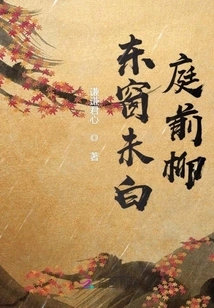 庭前柳
东窗未白
谦谦君心 ◎ 著